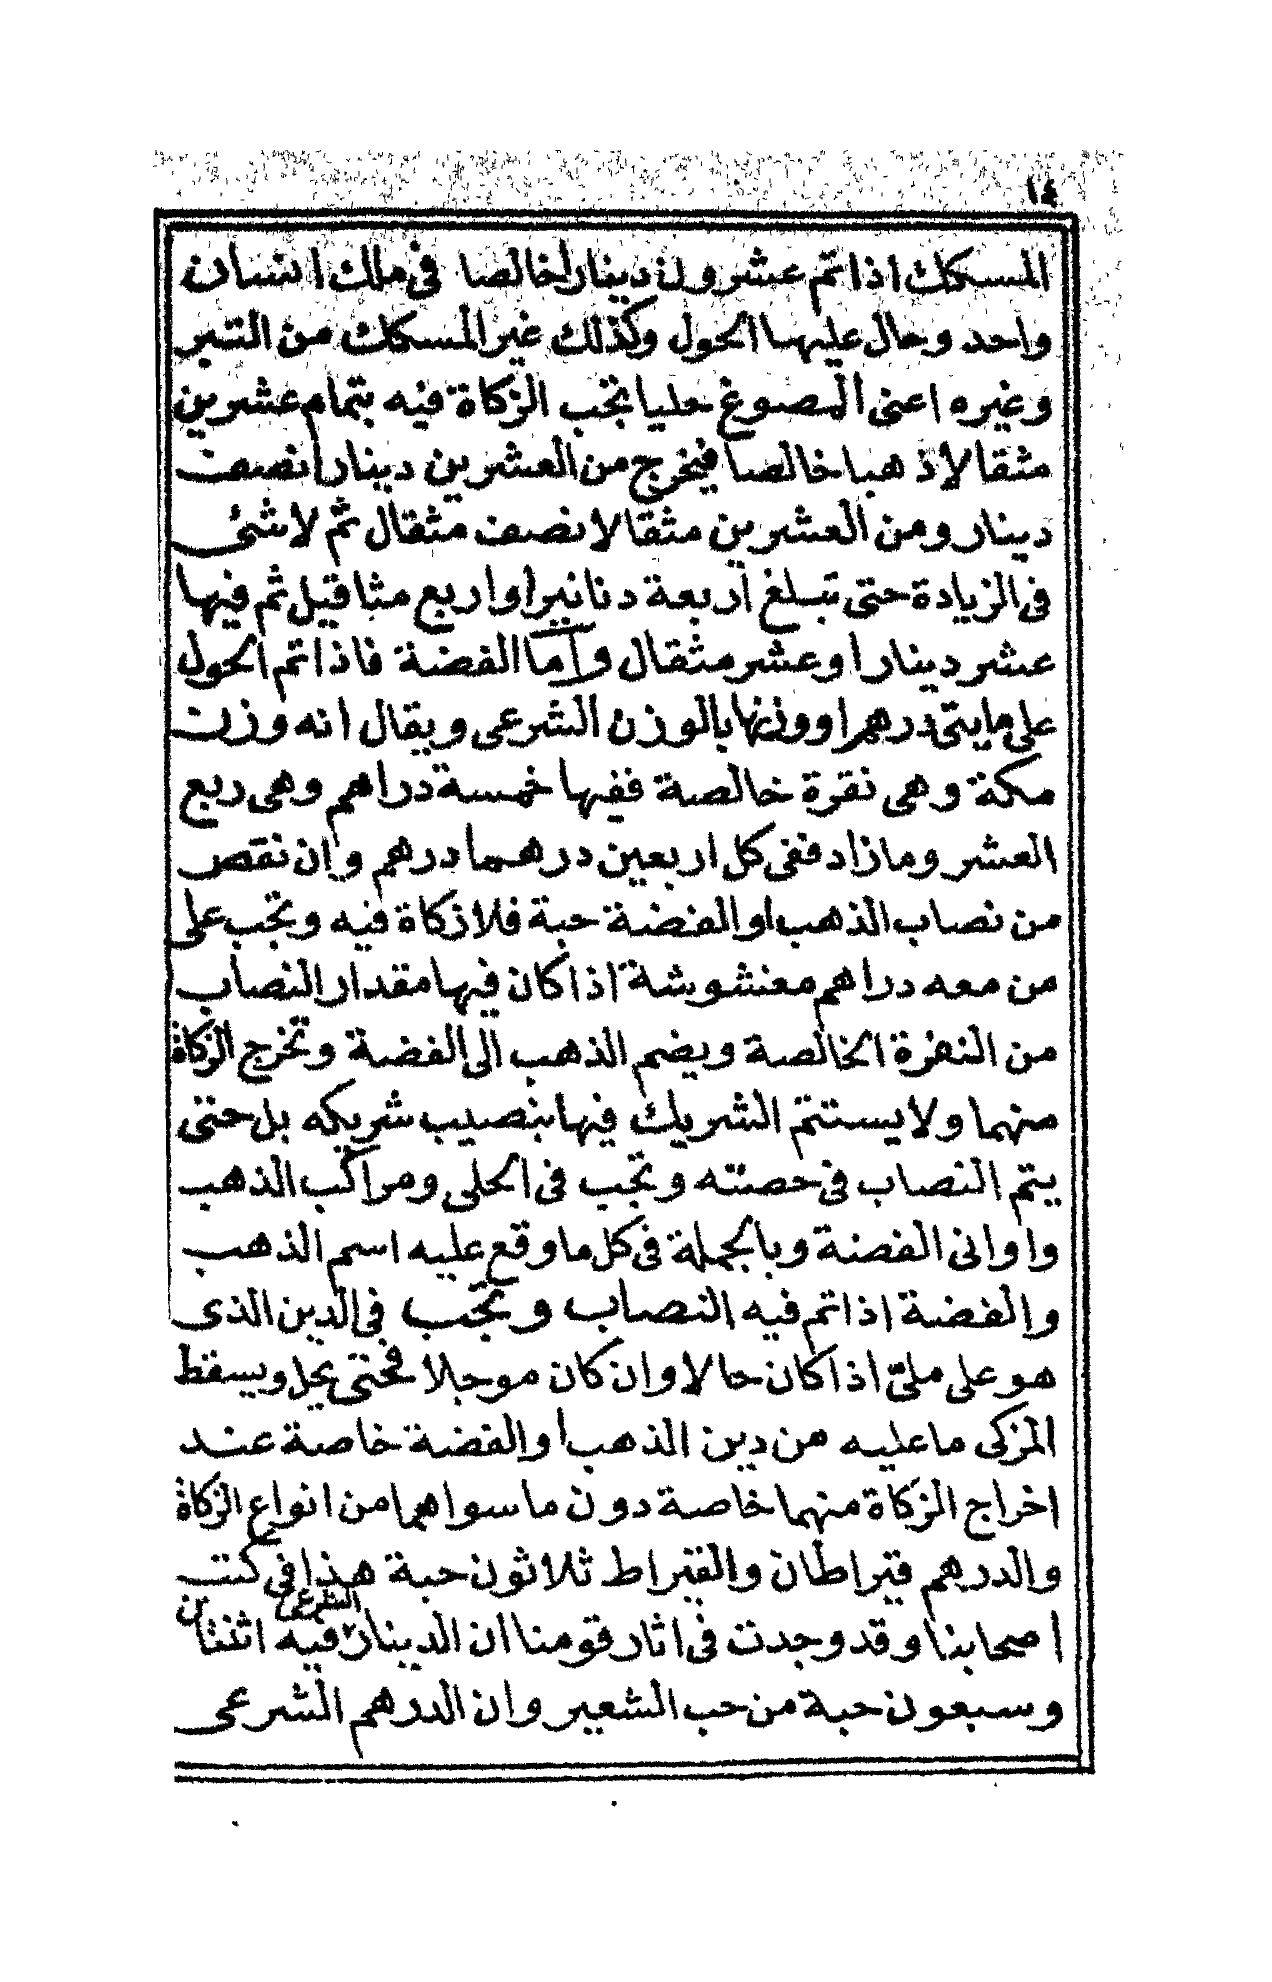 ١٤
المسكك اذا تم عشرون دينارا خالصا فى ملك انسان
واحد وحال عليها الحول وكذلك غير المسكك من التبر
وغيره اعنى المصوغ حليا تجب الزكاة فيه بتمام عشرين
مثقالا ذهبا خالصا فيخرج من العشرين دينارا نصف
دينار ومن العشرين مثقالا نصف مثقال ثم لا شئ
فى الزيادة حتى تبلغ اربعة دنانير او اربع مثاقيل ثم فيها
عشر دينار او عشر مثقال واما الفضة فاذا تم الحول
على مايتى درهم اووزنها بالوزن الشرعى ويقال انه وزن
مكة وهى نقرة خالصة ففيها خمسة دراهم وهى ربع
العشر وما زاد ففى كل اربعين درهما درهم وان نقص
من نصاب الذهب او الفضة حبة فلا زكاة فيه وتجب على
من معه دراهم مغشوشة اذا كان فيها مقدار النصاب
من النقرة الخالصة ويضم الذهب الى الفضة وتخرج الزكاة
منهما ولا يستتم الشريك فيها بنصيب شريكه بل حتى
يتم النصاب فى حصته وتجب فى الحلى ومراكب الذهب
واوانى الفضة وبالجملة فى كل ما وقع عليه اسم الذهب
والفضة اذا تم فيه النصاب وتجب فى الدين الذى
هو على ملئ اذا كان حالا وان كان موجلا فحتى يحل ويسقط
المزكى ما عليه من دين الذهب او الفضة خاصة عند
اخراج الزكاة منهما خاصة دون ما سواهما من انواع الزكاة
والدرهم قيراطان والقيراط ثلاثون حبة هذا فى كتب
اصحابنا وقد وجدت فى اثار قومنا ان الدينار الشرعى فيه اثنتان
وسبعون حبة من حب الشعير وان الدرهم الشرعى